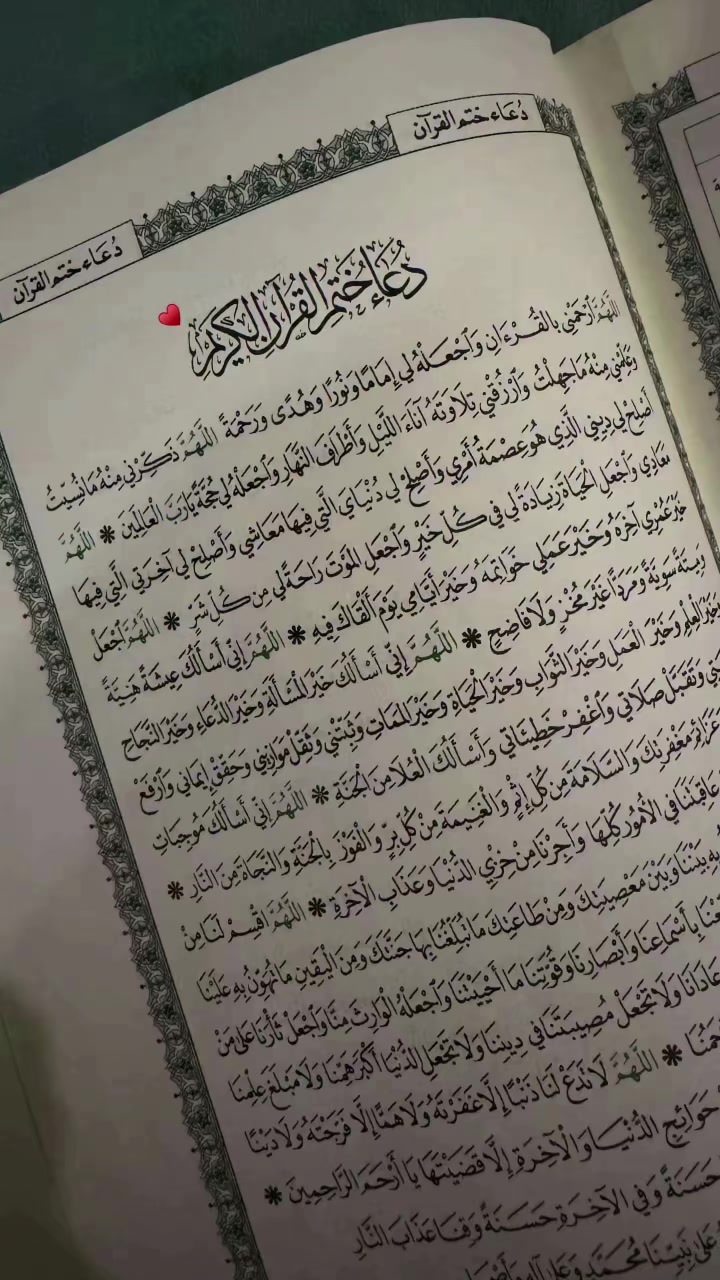 دُعَاء ختم القرآن
دُعَاء ختم القرآن
دُعَاءُ خَتْمِ القُرْآنِ الكَرِيمِ
اللَّهُمَّ ٱرْحَمْنِي بِالقُرْءَانِ وَٱجْعَلْهُ لِي إِمَامًا وَنُورًا وَهُدًى وَرَحْمَةً اللَّهُمَّ ذَكِّرْنِي مِنْهُ مَانُسِّيتُ
وَعَلِّمْنِي مِنْهُ مَاجَهِلْتُ وَٱرْزُقْنِي تِلَاوَتَهُ آنَاءَ اللَّيْلِ وَأَطْرَافَ النَّهَارِ وَٱجْعَلْهُ لِي حُجَّةً يَارَبَّ العَالَمِينَ * اللَّهُمَّ
أَصْلِحْ لِي دِينِي الَّذِي هُوَ عِصْمَةُ أَمْرِي وَأَصْلِحْ لِي دُنْيَايَ الَّتِي فِيهَا مَعَاشِي وَأَصْلِحْ لِي آخِرَتِي الَّتِي فِيهَا
مَعَادِي وَٱجْعَلِ الْحَيَاةَ زِيَادَةً لِي فِي كُلِّ خَيْرٍ وَٱجْعَلِ المَوْتَ رَاحَةً لِي مِن كُلِّ شَرٍّ * اللَّهُمَّ ٱجْعَلْ
خَيْرَ عُمْرِي آخِرَهُ وَخَيْرَ عَمَلِي خَوَاتِمَهُ وَخَيْرَ أَيَّامِي يَوْمَ أَلْقَاكَ فِيهِ * اللَّهُمَّ إِنِّي أَسْأَلُكَ عِيشَةً هَنِيَّةً
وَمِيتَةً سَوِيَّةً وَمَرَدًّا غَيْرَ مُخْزٍ وَلَا فَاضِحٍ * اللَّهُمَّ إِنِّي أَسْأَلُكَ خَيْرَ المَسْأَلَةِ وَخَيْرَ الدُّعَاءِ وَخَيْرَ النَّجَاحِ
وَخَيْرَ العِلْمِ وَخَيْرَ الْعَمَلِ وَخَيْرَ الثَّوَابِ وَخَيْرَ الْحَيَاةِ وَخَيْرَ المَمَاتِ وَثَبِّتْنِي وَثَقِّلْ مَوَازِينِي وَحَقِّقْ إِيمَانِي وَٱرْفَعْ
وَتَقَبَّلْ صَلَاتِي وَٱغْفِرْ خَطِيئَاتِي وَأَسْأَلُكَ الْعُلَا مِنَ الْجَنَّةِ * اللَّهُمَّ إِنِّي أَسْأَلُكَ مُوجِبَاتِ
وَعَزَائِمَ مَغْفِرَتِكَ وَالسَّلَامَةَ مِن كُلِّ إِثْمٍ وَالْغَنِيمَةَ مِنْ كُلِّ بِرٍّ وَالْفَوْزَ بِالْجَنَّةِ وَالنَّجَاةَ مِنَ النَّارِ *
عَاقِبَتَنَا فِي الأُمُورِ كُلِّهَا وَأَجِرْنَا مِنْ خِزْيِ الدُّنْيَا وَعَذَابِ الْآخِرَةِ * اللَّهُمَّ اقْسِمْ لَنَا مِنْ
بِهِ بَيْنَنَا وَبَيْنَ مَعْصِيَتِكَ وَمِنْ طَاعَتِكَ مَاتُبَلِّغُنَا بِهَا جَنَّتَكَ وَمِنَ الْيَقِينِ مَاتُهَوِّنُ بِهِ عَلَيْنَا
بِأَسْمَاعِنَا وَأَبْصَارِنَا وَقُوَّتِنَا مَا أَحْيَيْتَنَا وَٱجْعَلْهُ الْوَارِثَ مِنَّا وَٱجْعَلْ ثَأْرَنَا عَلَى مَنْ
عَادَانَا وَلَا تَجْعَلْ مُصِيبَتَنَا فِي دِينِنَا وَلَا تَجْعَلِ الدُّنْيَا أَكْبَرَ هَمِّنَا وَلَا مَبْلَغَ عِلْمِنَا
* اللَّهُمَّ لَا تَدَعْ لَنَا ذَنْبًا إِلَّا غَفَرْتَهُ وَلَا هَمًّا إِلَّا فَرَّجْتَهُ وَلَا دَيْنًا
حَوَائِجِ الدُّنْيَا وَالْآخِرَةِ إِلَّا قَضَيْتَهَا يَا أَرْحَمَ الرَّاحِمِينَ *
حَسَنَةً وَفِي الآخِرَةِ حَسَنَةً وَقِنَا عَذَابَ النَّارِ
نَبِيِّنَا مُحَمَّدٍ وَعَلَى آلِهِ